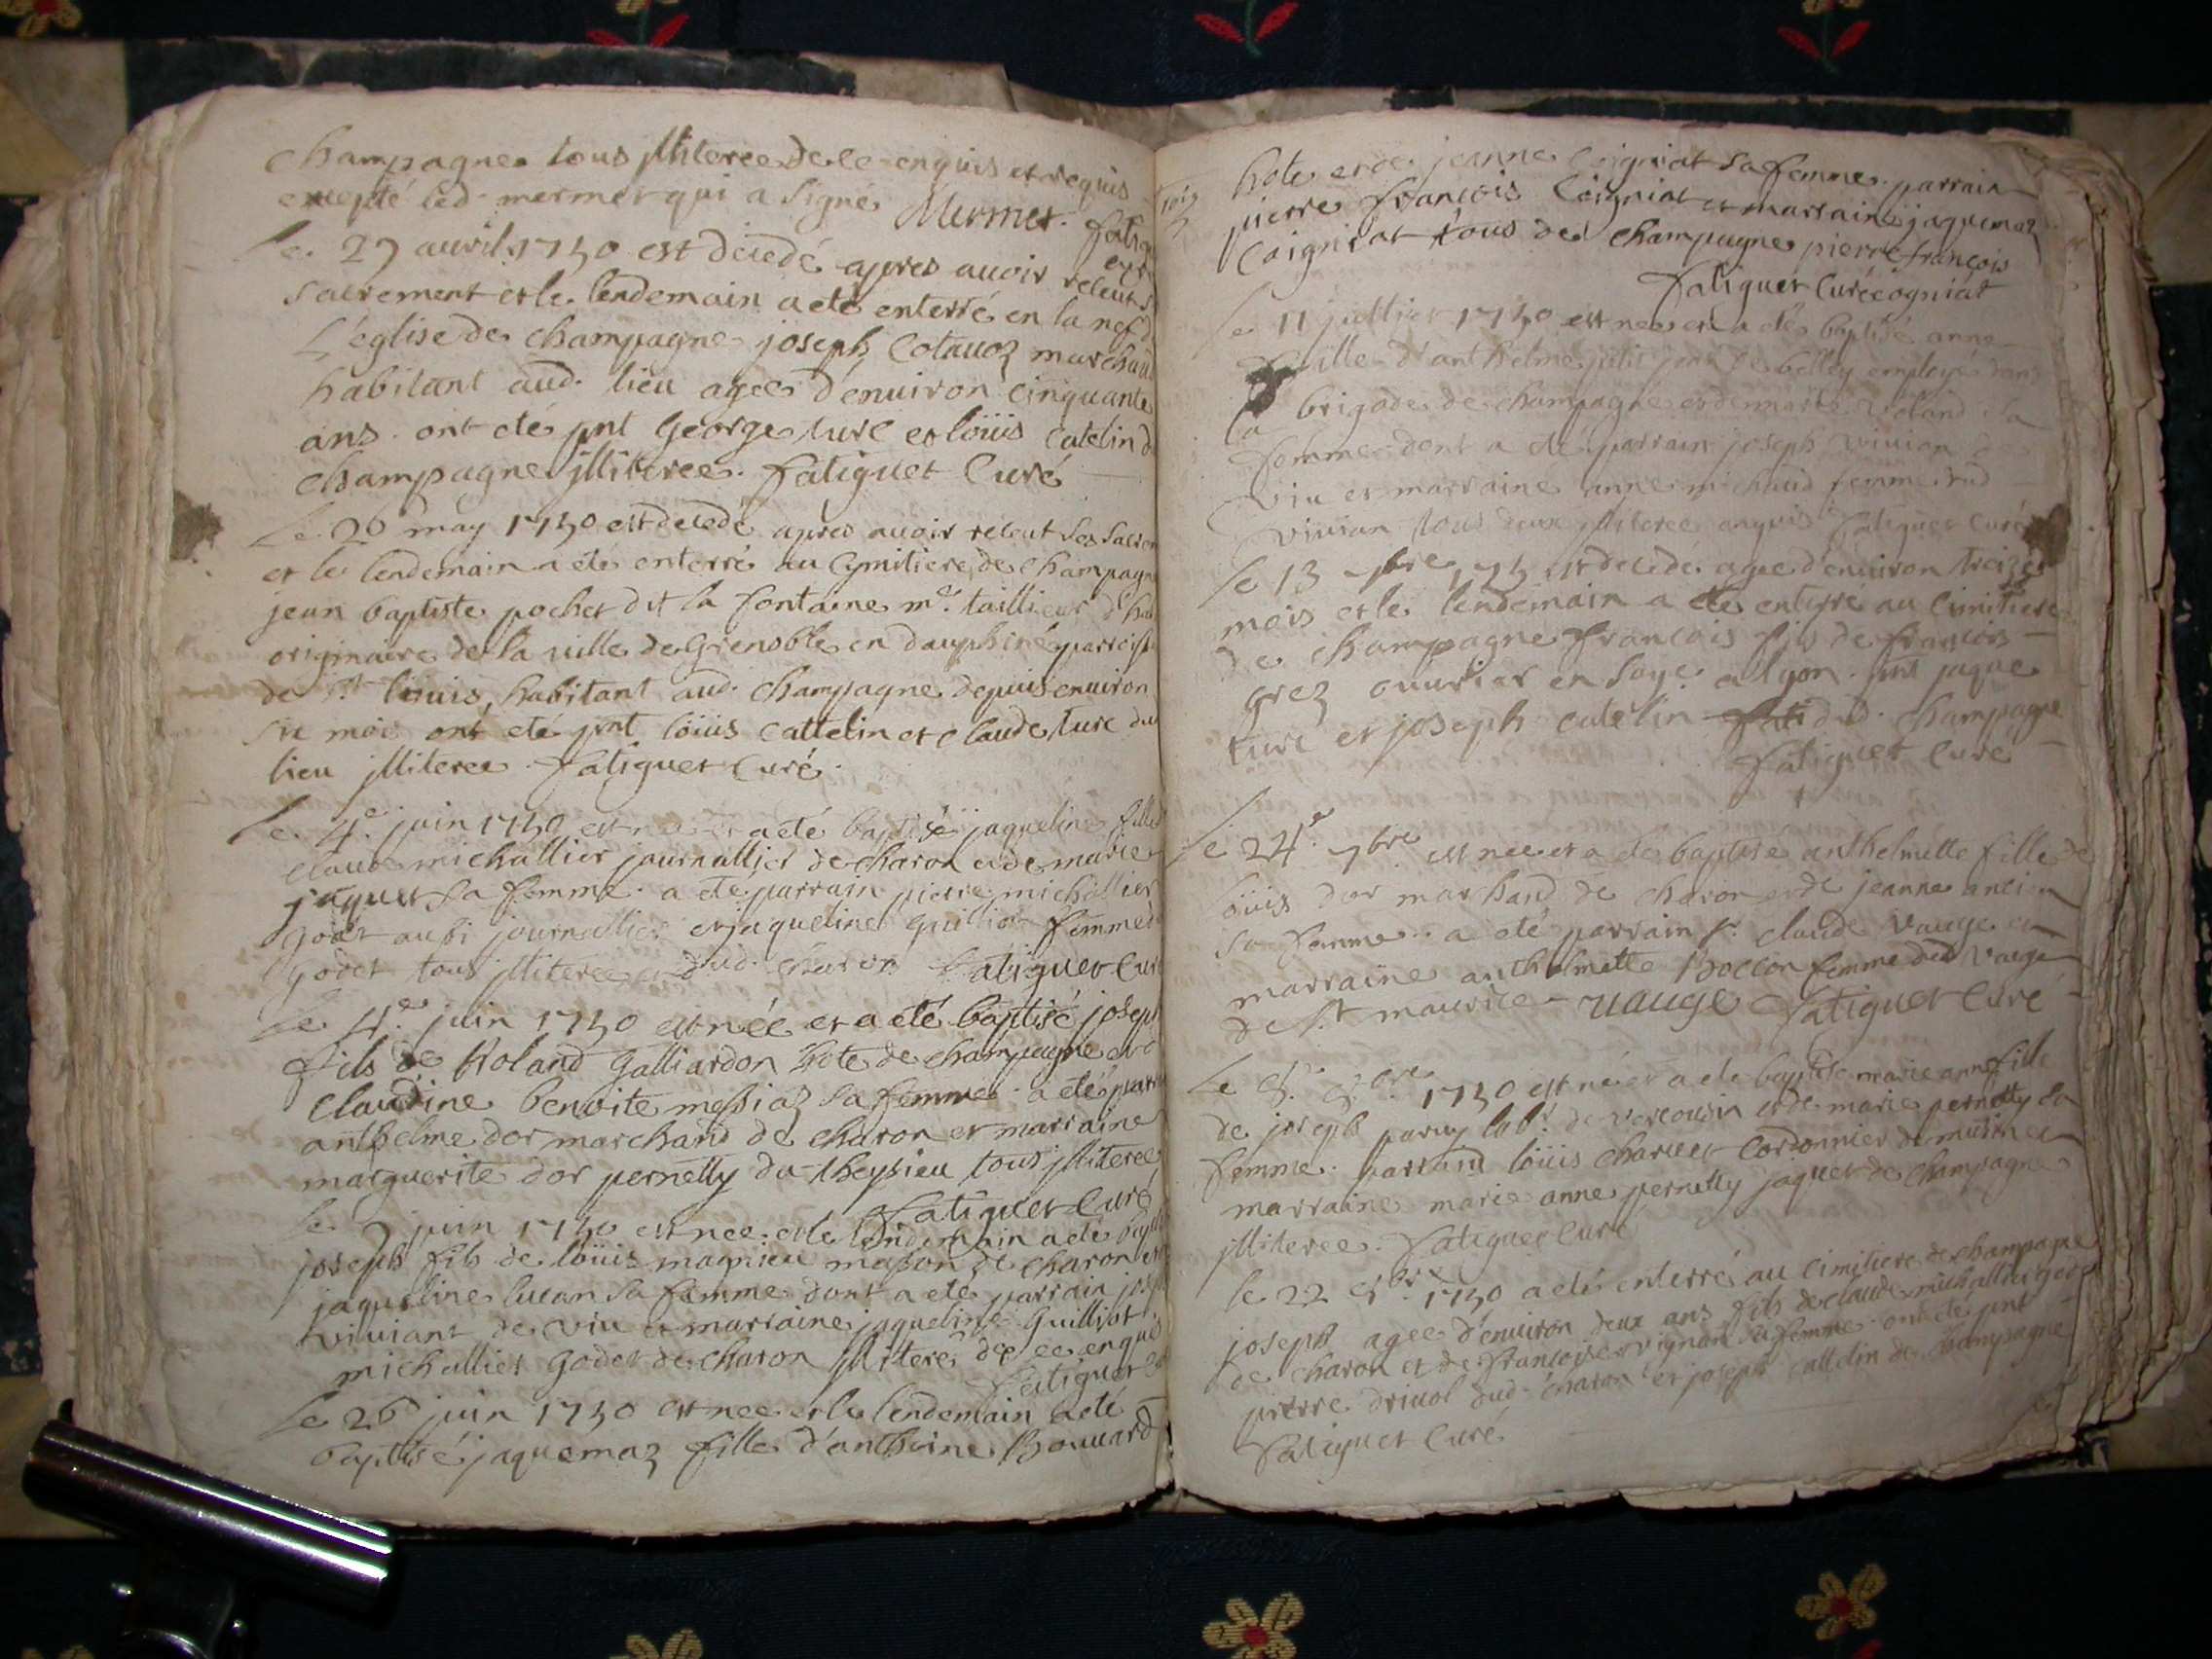 Champagne tous jlliteree de ce enquis et requis
excepté led. mermet qui a signé Mermet.
le 27 auril 1750 est décedé apres auoir receut
sacrement et le lendemain a eté enterré en la nef
L'église de champagne joseph Cotauoz marchand
habitant aud. lieu agee d'enuiron cinquante
ans. ont eté pnt George turc et löüis Catelin
champagne jlliteree. Fatiguet Curé
Le 20 may 1750 est decedé apres auoir receut ses
et le lendemain a eté enterré au Cymitiere de champagne
jean baptiste pochet dit la fontaine me. taillieur
originaire de la uille de Grenoble en dauphiné
de St. louis, habitant aud. champagne depuis enuiron
six mois ont eté pnt löüis Cattelin et Claude turc du
lieu jlliteree. Fatiguet Curé.
Le 4e. juin 1750 est née et a eté baptisé jaqueline fille
claude michallier journallier de charon et de marie
jaquet sa femme. a eté parrain pierre michallier
godet außi journallier et jaqueline femme
godet tous jlliteree dud. charon Fatiguet Curé
Le 4e. juin 1750 est née et a eté baptisé joseph
fils de Roland Galliardon hote de champagne
Claudine benoite meßiaz sa femme. a eté
anthelme dor marchand de charon et marraine
marguerite dor pernetty du theyßieu tous jlliteree
Fatiguet Curé
le 7 juin 1750 est nee et le lendemain a eté
joseph fils de löüis magnieu maßon de charon
jaqueline lucan sa femme dont a eté parrain
viuiant de viu et marraine jaqueline Guilliot
michallier godet de charon jlliteré de ce enquis
Fatiguet
le 26 juin 1750 est nee et le lendemain a eté
baptisé jaquemaz fille d'anthoine Bouuard
hote et de jeanne Coigniat sa femme. parrain
pierre françois Coigniat et marraine jaquemaz
Coigniat tous de champagne pierre françois
Fatiguet Curé cogniat
le 11 juillier 1750 est nee et a eté baptisé anne
fille d'anthelme belley employé dans
la brigade de champagne sa
femme dont a eté parrain joseph viuian
viu et marraine anne michaud femme dud
viuian tous deux jlliteree enquis Fatiguet Curé
le 13 7bre decedé agee d'enuiron treize
mois et le lendemain a eté enterré au cimitiere
de champagne françois fils de françois
grez ouurier en soye a lyon. pnt jaque
turc et joseph catelin dud. champagne
Fatiguet Curé
Le 24e. 7bre est nee et a eté baptisé anthelmette fille de
löüis dor marchand de charon et de jeanne
sa femme. a eté parrain claude Vauge et
marraine anthelmette femme dud Vauge
de St. maurice - uauge Fatiguet Curé
Le 8bre 1750 est né et a eté baptisé marie anne fille
de joseph de vercousin et de marie pernetty sa
femme. parrain löüis charuet cordonnier de
marraine marie anne pernetty jaquet de champagne
jlliteree. Fatiguet Curé
le 22 1750 a eté enterré au cimitiere de champagne
joseph agee d'enuiron deux ans fils de claude michallier
de charon et de françoise sa femme. ont eté pnt
pierre dud. charon et joseph cattelin de champagne
Fatiguet Curé